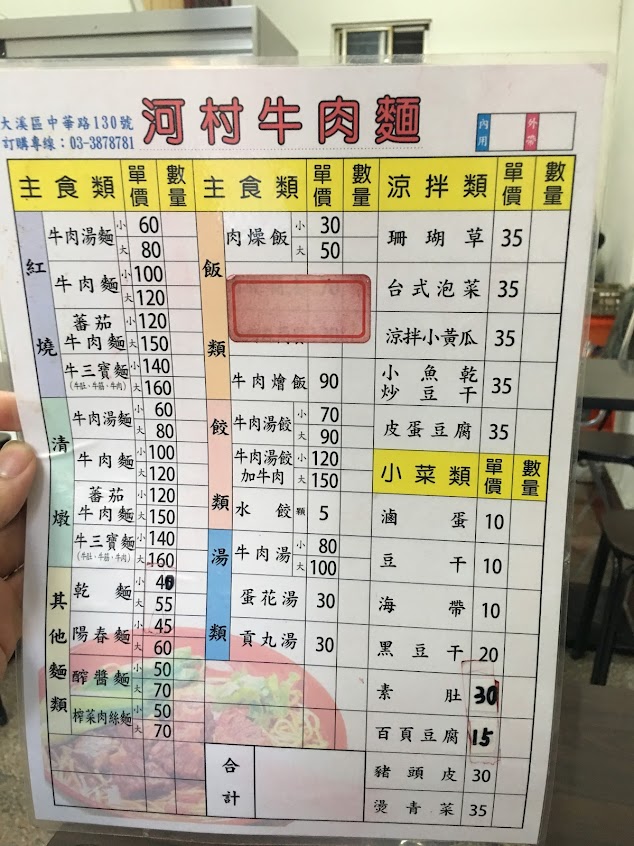 大溪區中華路130號
訂購專線：03-3878781
河村牛肉麵
內用
外帶
主食類 單價 數量
紅燒
牛肉湯麵 小 60
大 80
牛肉麵 小 100
大 120
蕃茄牛肉麵 小 120
大 150
牛三寶麵 小 140
(牛肚、牛筋、牛肉) 大 160
清燉
牛肉湯麵 小 60
大 80
牛肉麵 小 100
大 120
蕃茄牛肉麵 小 120
大 150
牛三寶麵 小 140
(牛肚、牛筋、牛肉) 大 160
其他麵類
乾麵 小 40
大 55
陽春麵 小 45
大 60
醡醬麵 小 50
大 70
榨菜肉絲麵 小 50
大 70
主食類 單價 數量
飯類
肉燥飯 小 30
大 50
牛肉燴飯 90
餃類
牛肉湯餃 小 70
大 90
牛肉湯餃加牛肉 小 120
大 150
水餃 顆 5
湯類
牛肉湯 小 80
大 100
蛋花湯 30
貢丸湯 30
合計
涼拌類 單價 數量
珊瑚草 35
台式泡菜 35
涼拌小黃瓜 35
小魚乾炒豆干 35
皮蛋豆腐 35
小菜類 單價 數量
滷蛋 10
豆干 10
海帶 10
黑豆干 20
素肚 30
百頁豆腐 15
豬頭皮 30
燙青菜 35